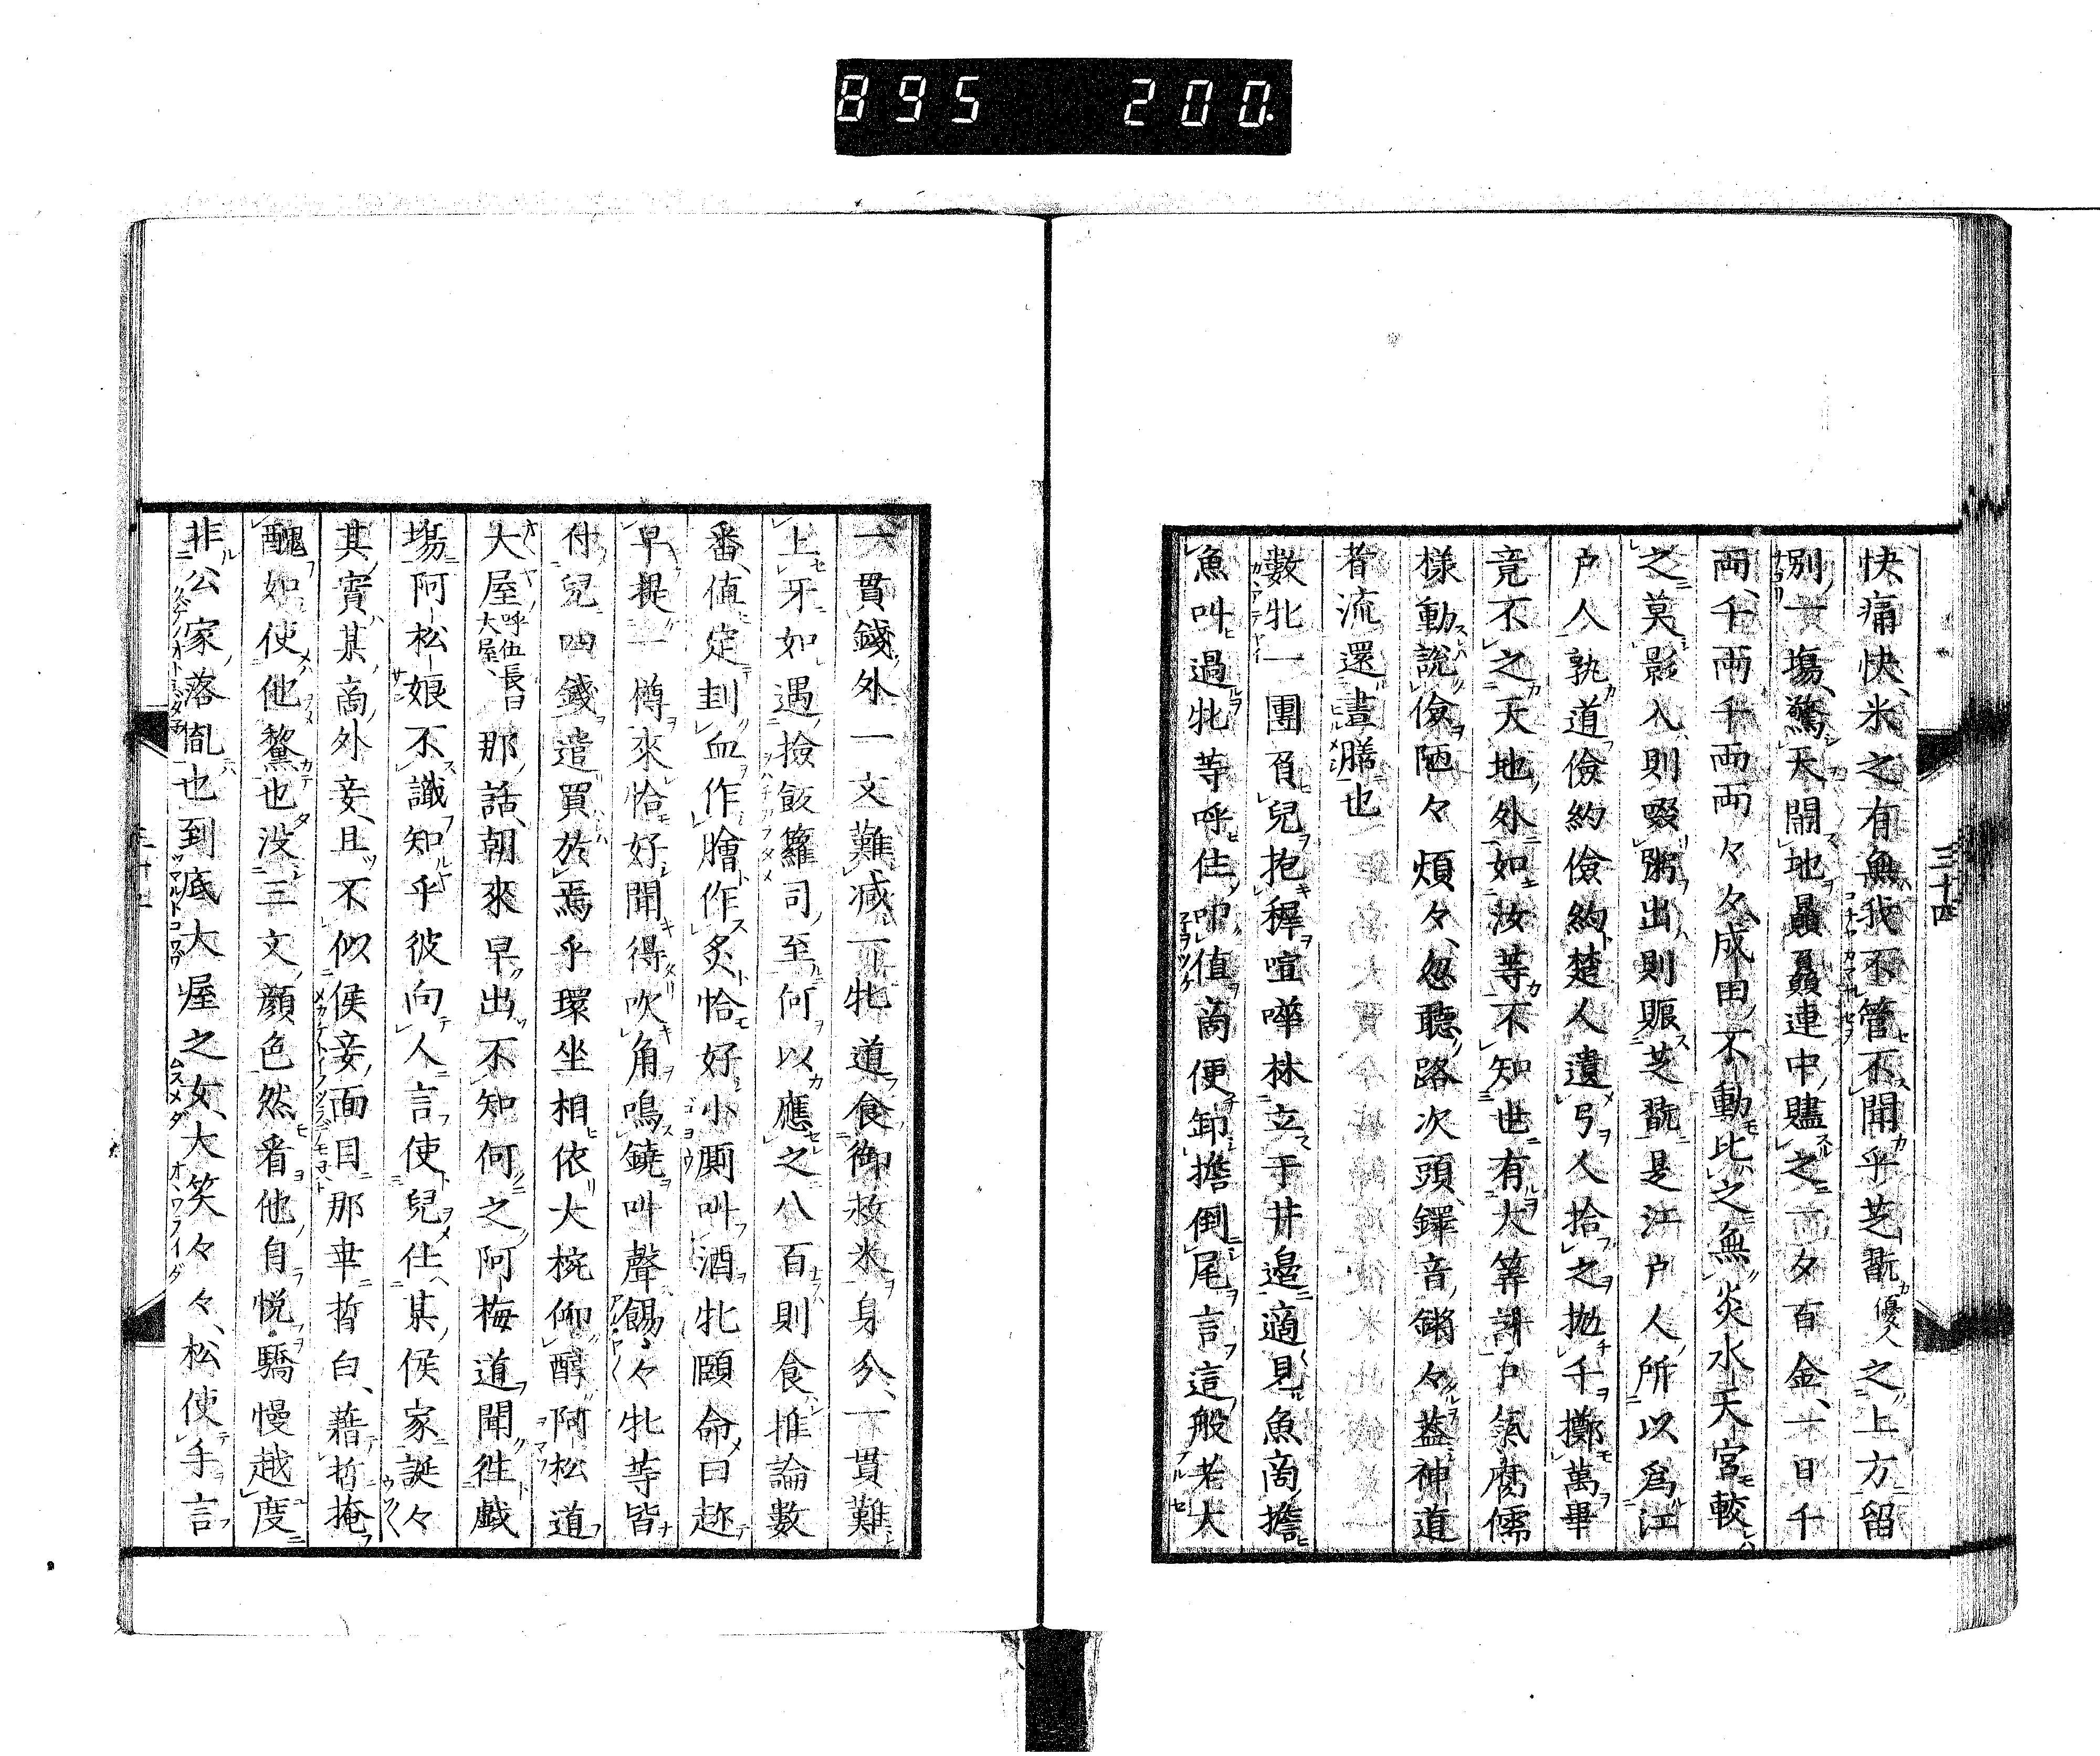 895 200
三十四
快痛快米之有無我不管不關乎芝翫優人之上方留
別一塲驚天鬧地贔屓連中贐之一夕百金一日千
兩千兩千兩兩々々成田不動比之無炎水天宮較
之莫影入則啜粥出則賑芝翫是江戸人所以爲江
戸人孰道儉約儉約楚人遺弓人拾之抛千擲萬畢
竟不之天地外如汝等不知世有大筭謂戸氣腐儒
樣動說儉陋々煩々忽聽路次頭鐸音鏘々蓋神道
者流還晝膳也
數牝一團負兒抱穉喧嘩林立于井邉適見魚商擔
魚叫過牝等呼住叩値商便卸擔倒尾言這般老大
一貫錢外一文難减一牝道食御救米身分一貫難
上牙如遇撿飯籮司至何以應之八百則食推論數
番値定刲血作膾作炙恰好小厮叫酒牝頤命曰趂
早提一樽來恰好聞得吹角鳴鐃叫聲餳々牝等皆
付兒四錢遣買於焉乎環坐相依大椀仰酹阿松道
大屋呼伍長曰大屋那話朝來早出不知何之阿梅道聞徃戯
塲阿松娘不識知乎彼向人言使兒仕某侯家誕々
其實某商外妾且不似侯妾面目那幸晳白藉晳掩
醜如使他黧也没三文顔色然看他自悦驕慢越度
非公家落胤也到底大屋之女大笑々々松使手言